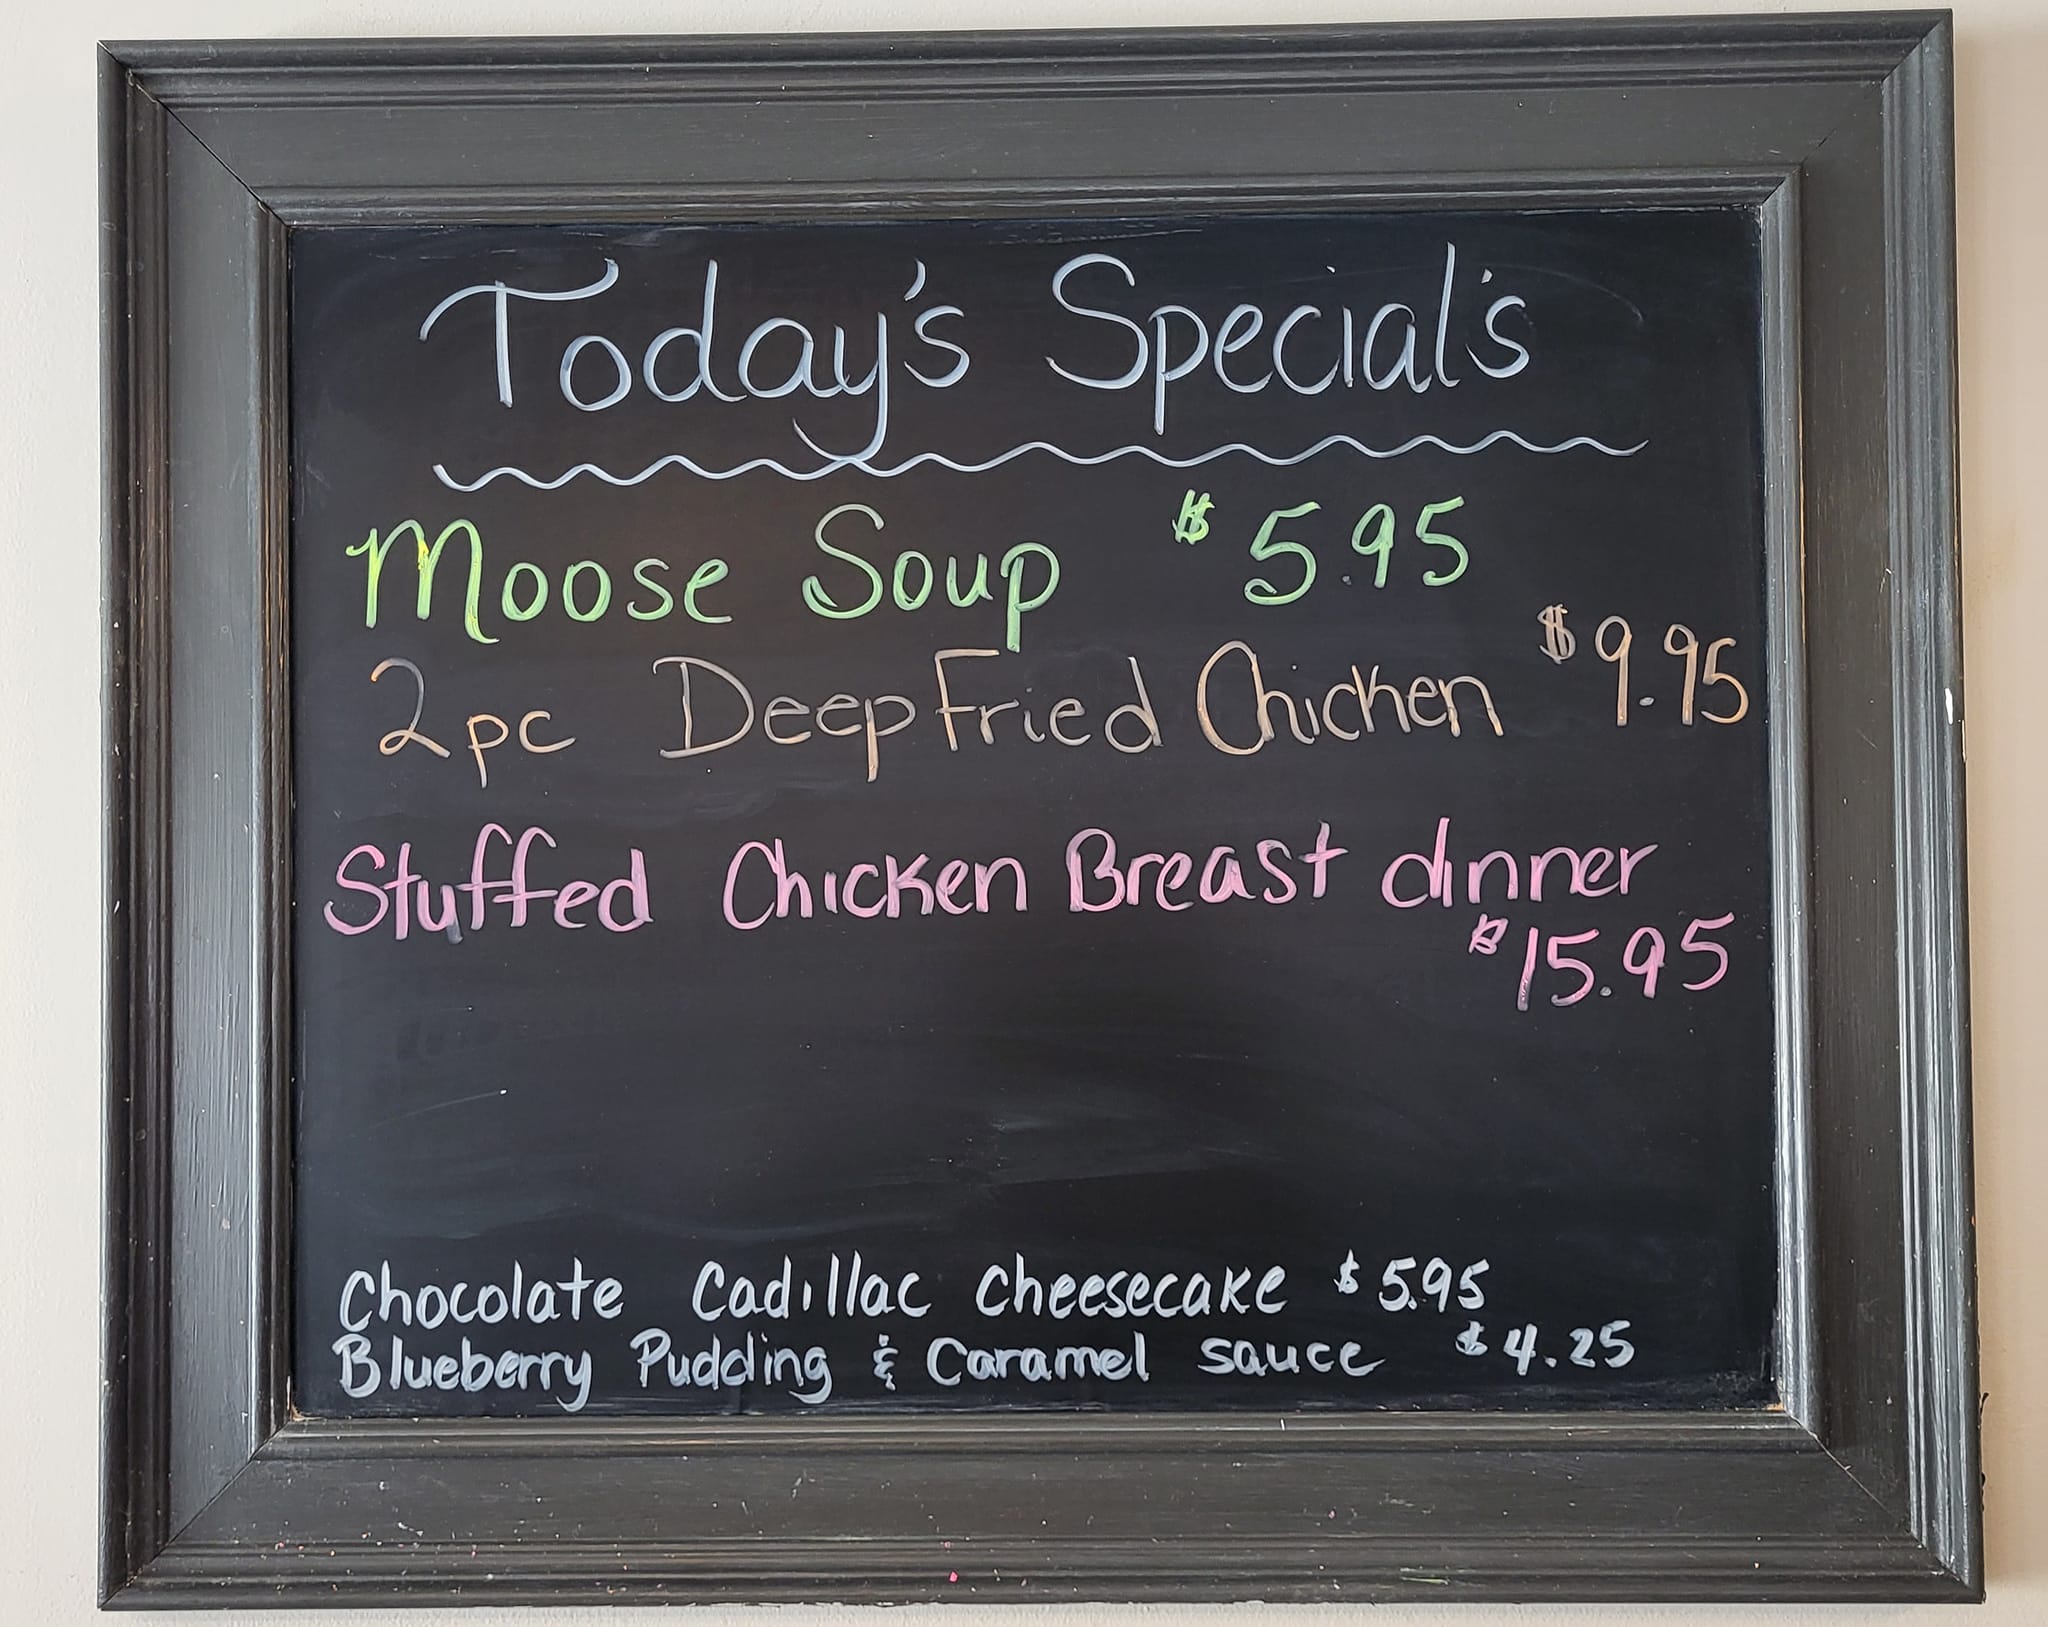 Today's Special's
Moose Soup $5.95
2pc Deep Fried Chicken $9.95
Stuffed Chicken Breast dinner
$15.95
Chocolate Cadillac Cheesecake $5.95
Blueberry Pudding & Caramel sauce $4.25